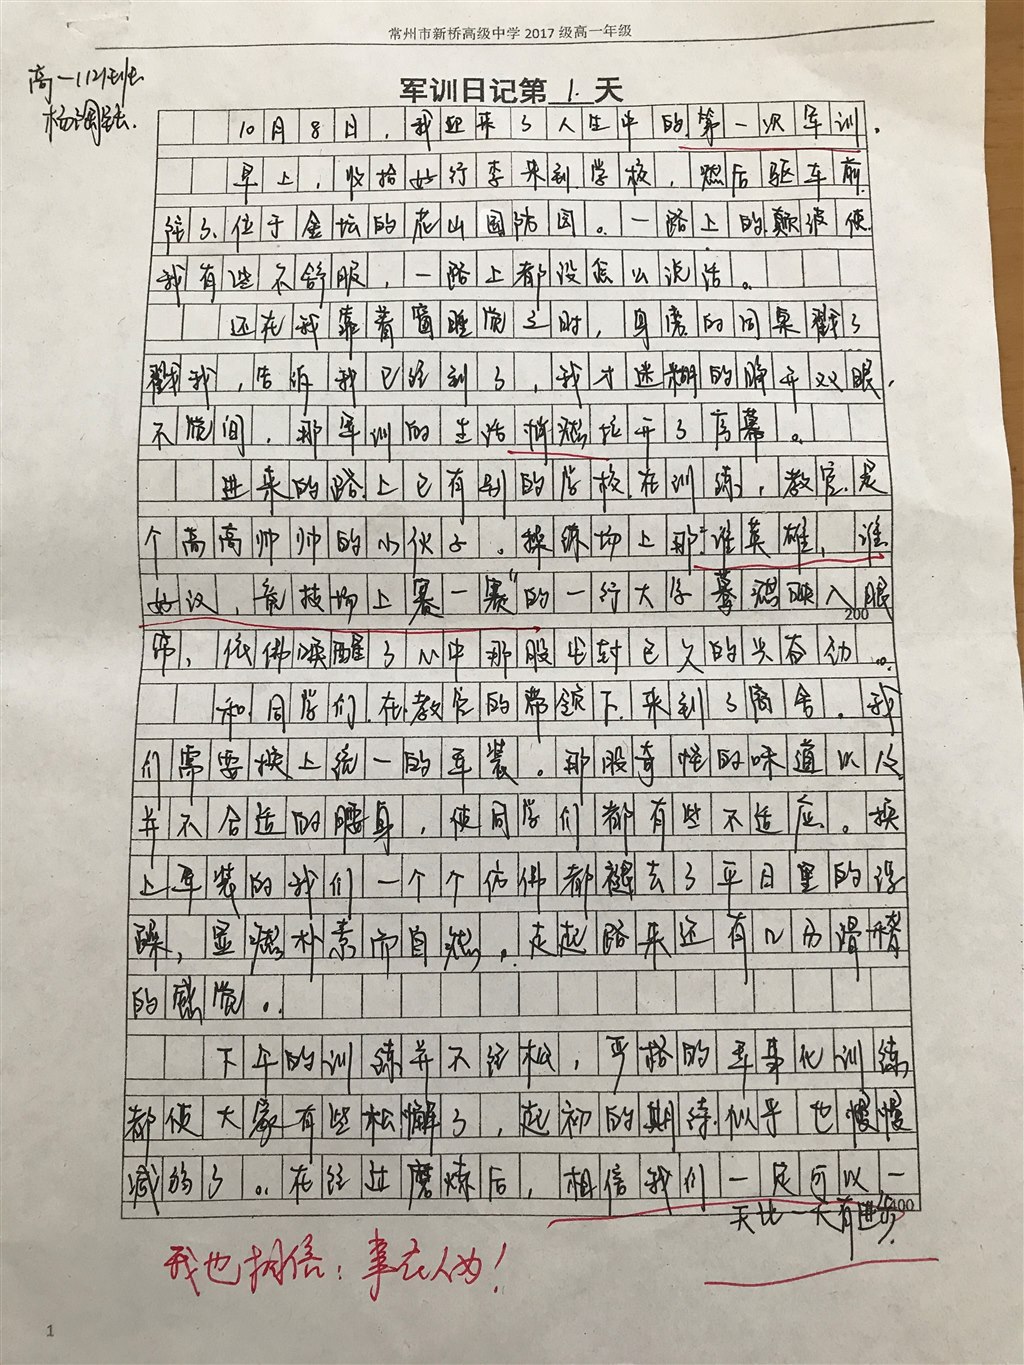 常州市新桥高级中学2017级高一年级
高一(12)班
军训日记第1.天
10月8日,我迎来了人生中的第一次军训.
早上,收拾好行李来到学校,然后驱车前
往了位于金坛的茏山国防园。一路上的颠波使
我有些不舒服,一路上都没怎么说话。
还在我靠着窗睡觉之时,身旁的同桌戳了
戳我,告诉我已经到了,我才迷糊的睁开双眼,
不觉间,那军训的生活悄然拉开了序幕。
进来的路上已有别的学校在训练,教官是
个高高帅帅的小伙子。操练场上那"谁英雄,谁
好汉,竞技场上赛一赛"的一行大字蓦然映入眼
200
帘,依佛唤醒了心中那股尘封已久的兴奋劲。
和同学们在教官的带领下来到了宿舍。我
们需要换上统一的军装。那股奇怪的味道以及
并不合适的腰身,使同学们都有些不适应。换
上军装的我们一个个仿佛都褪去了平日里的浮
躁,显然朴素而自然。走起路来还有几分滑稽
的感觉。
下午的训练并不轻松,严格的军事化训练
都使大家有些松懈了,起初的期待似乎也慢慢
减弱了。在经过磨炼后,相信我们一定可以一
400
天比一天有进步.
我也相信:事在人为!
1